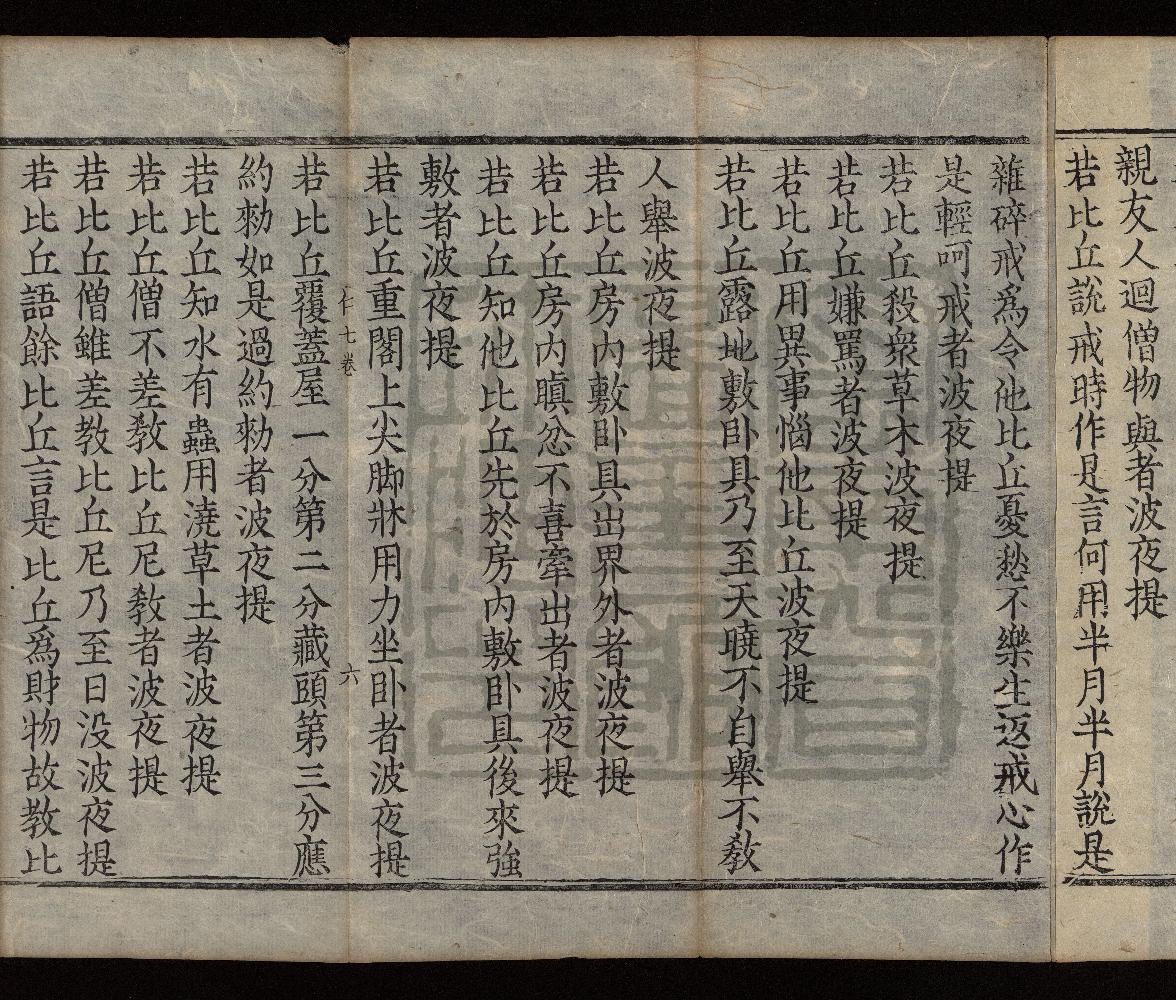 親友人迴僧物與者波夜提
若比丘說戒時作是言何用半月半月說是
雜碎戒爲令他比丘憂愁不樂生返戒心作
是輕呵戒者波夜提
若比丘殺衆草木波夜提
若比丘嫌罵者波夜提
若比丘用異事惱他比丘波夜提
若比丘露地敷卧具乃至天曉不自舉不教
人舉波夜提
若比丘房内敷卧具出界外者波夜提
若比丘房内瞋忿不喜牽出者波夜提
若比丘知他比丘先於房内敷卧具後來強
敷者波夜提
若比丘重閣上尖脚牀用力坐卧者波夜提
仁七卷 六
若比丘覆蓋屋一分第二分藏頭第三分應
約勑如是過約勑者波夜提
若比丘知水有蟲用澆草土者波夜提
若比丘僧不差教比丘尼教者波夜提
若比丘僧雖差教比丘尼乃至日没波夜提
若比丘語餘比丘言是比丘爲財物故教比